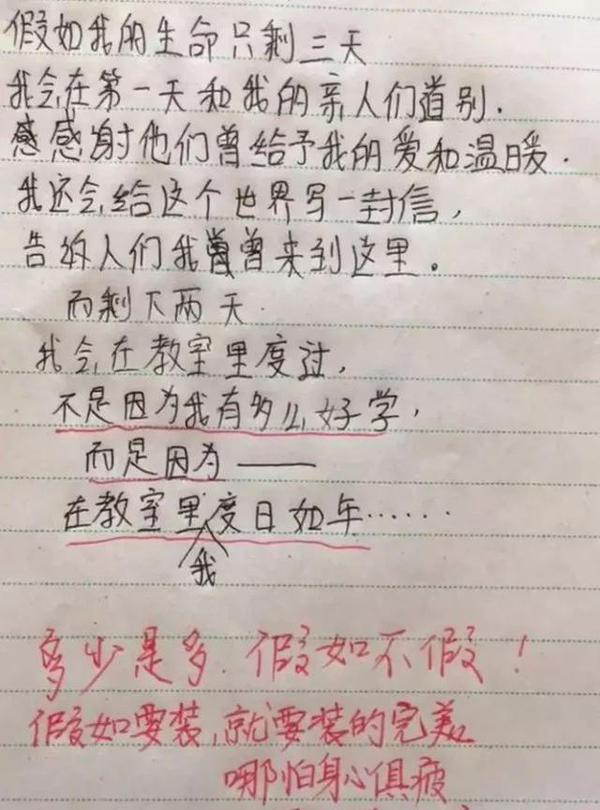 假如我的生命只剩三天
我会在第一天和我的亲人们道别.
感感谢他们曾给予我的爱和温暖.
我还会给这个世界写一封信,
告诉人们我曾曾来到这里。
而剩下两天.
我会在教室里度过,
不是因为我有多么好学,
而是因为——
在教室里度日如年……
我
多少是多.假如不假!
假如要装,就要装的完美
哪怕身心俱疲